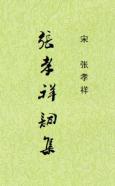 宋 张孝祥
張孝祥詞集